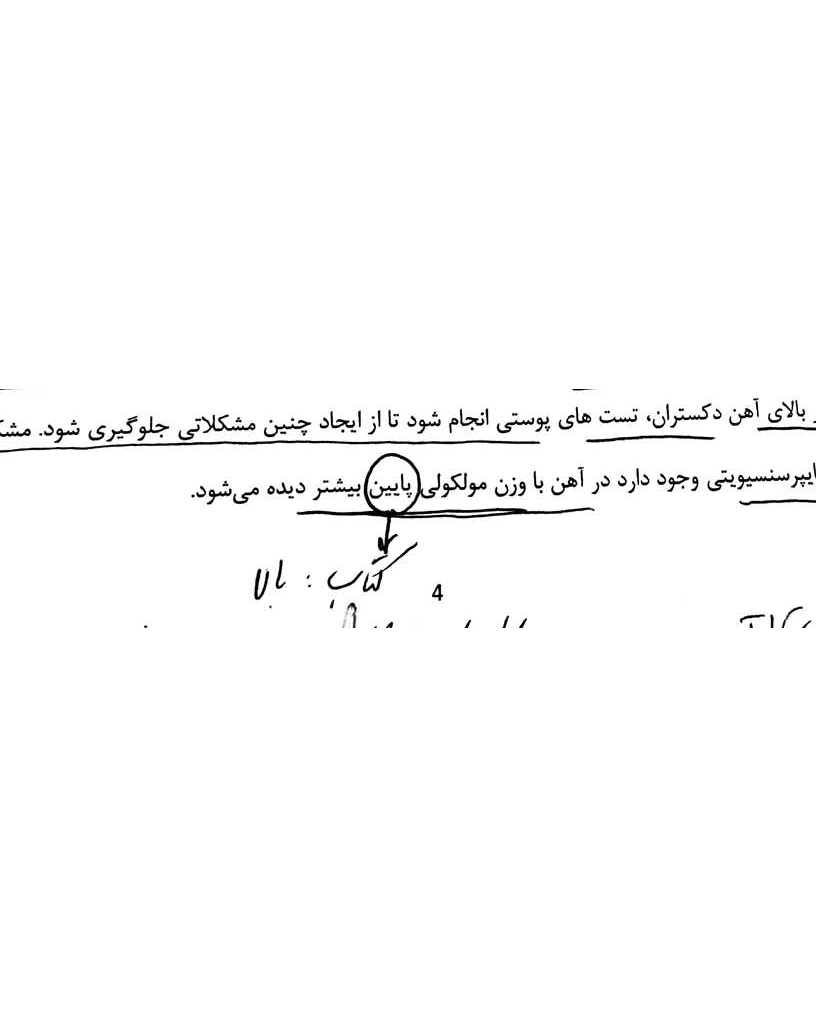 بالای آهن دکستران، تست های پوستی انجام شود تا از ایجاد چنین مشکلاتی جلوگیری شود.
وجود دارد در آهن با وزن مولکولی پایین بیشتر دیده می‌شود.
کتاب : بالا
4